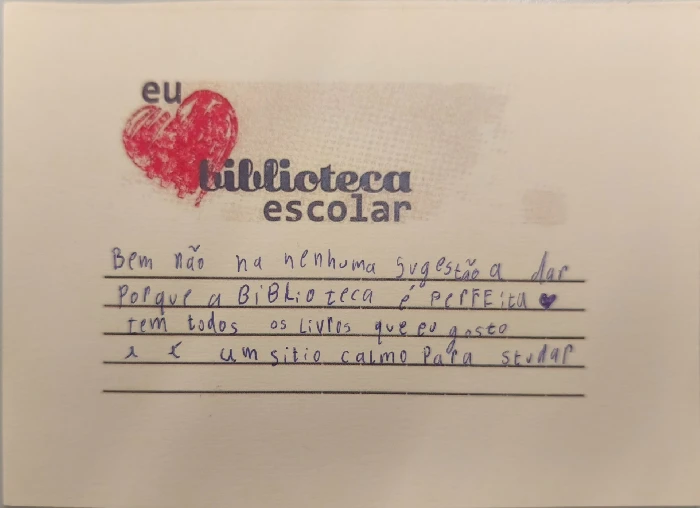 eu
biblioteca
escolar
Bem não ha nenhuma sugestão a dar
Porque a BiBLioTeca é PerFEita
Tem todos os Livros que eu gosto
e é um sitio calmo Para studar